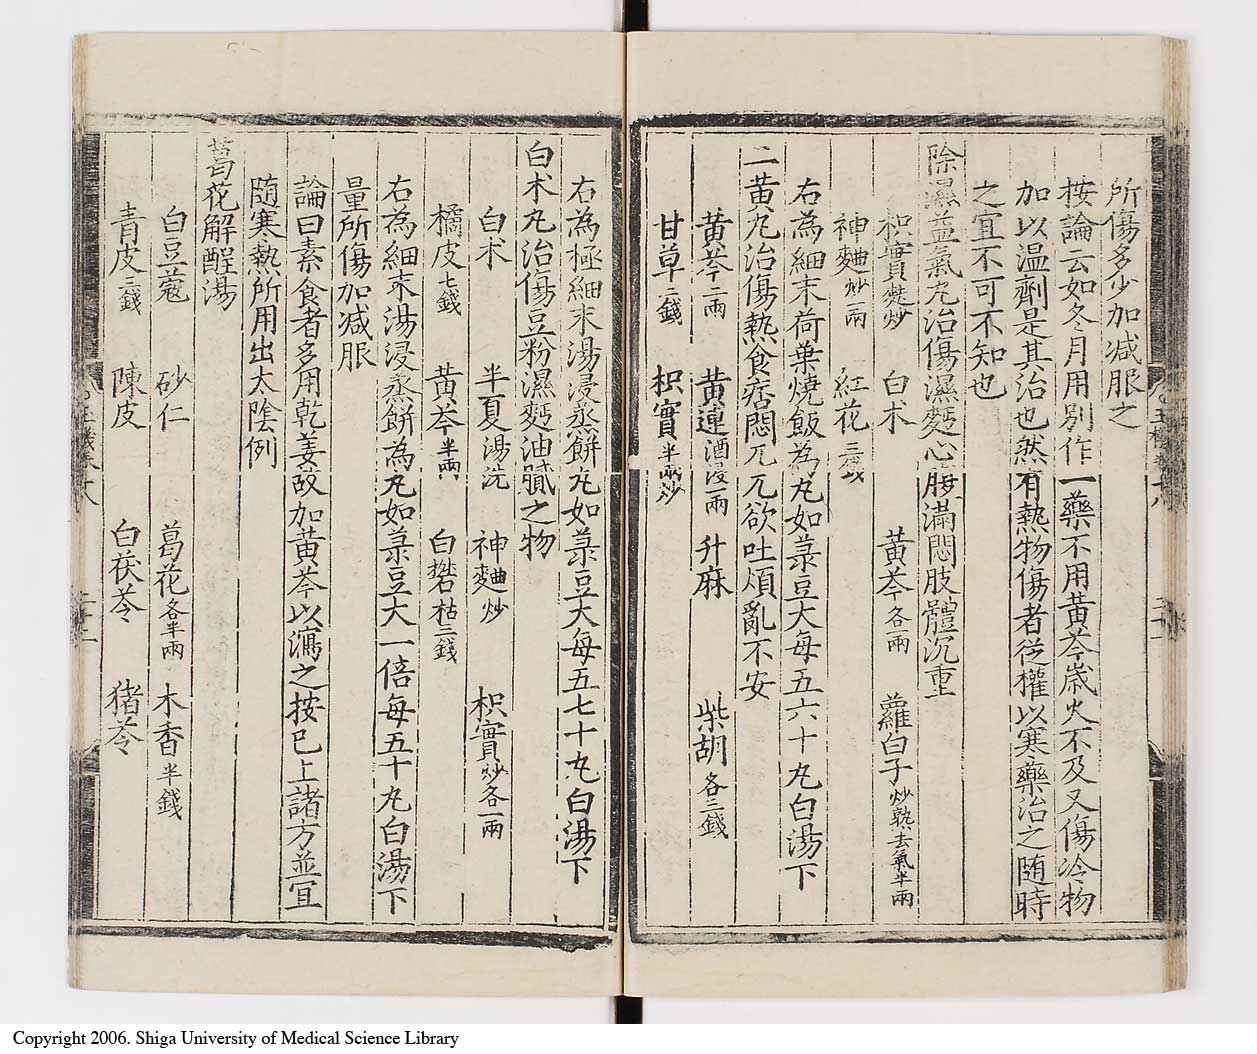 所傷多少加減服之
按論云如冬月用別作一藥不用黃芩歲火不及又傷冷物
加以温劑是其治也然有熱物傷者従權以寒藥治之随時
之宜不可不知也
除濕益氣丸治傷濕麪心腹滿悶肢體沉重
枳實麩炒 白术 黃芩各一兩 蘿白子炒熟去氣半兩
神麯炒一兩 紅花三錢
右為細末荷葉燒飯為丸如菉豆大每五六十丸白湯下
二黃丸治傷熱食痞悶兀兀欲吐煩亂不安
黃芩二兩 黃連酒浸一兩 升麻 柴胡各三錢
甘草二錢 枳實半兩炒
右為極細末湯浸蒸餅丸如菉豆大每五七十丸白湯下
白术丸治傷豆粉濕麪油膩之物
白术 半夏湯洗 神麯炒 枳實炒各一兩
橘皮七錢 黃芩半兩 白礬枯三錢
右為細末湯浸蒸餅為丸如菉豆大一倍每五十丸白湯下
量所傷加减服
論曰素食者多用乾姜故加黃芩以瀉之按已上諸方並宜
随寒熱所用出太陰例
葛花解酲湯
白豆蔻 砂仁 葛花各半兩 木香半錢
青皮三錢 陳皮 白茯苓 猪苓